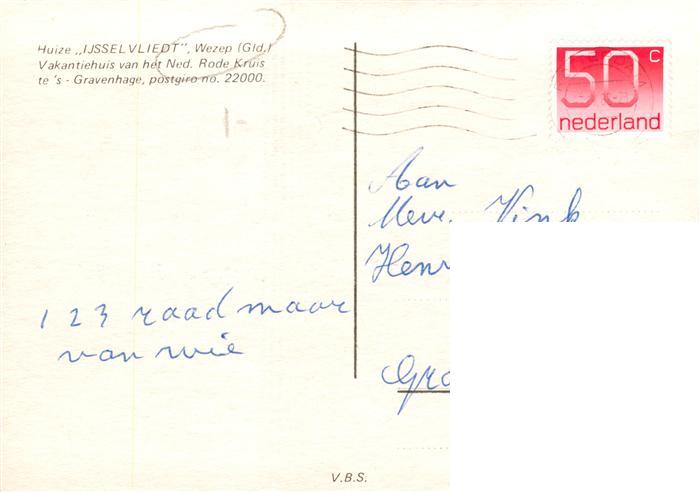 Huize „IJSSELVLIEDT", Wezep (Gld.)
Vakantiehuis van het Ned. Rode Kruis
te 's - Gravenhage, postgiro no. 22000.
50 c
nederland
1-
Aan
Mevr. Vink
Henr
1 2 3 raad maar
van wie
Gro
V.B.S.